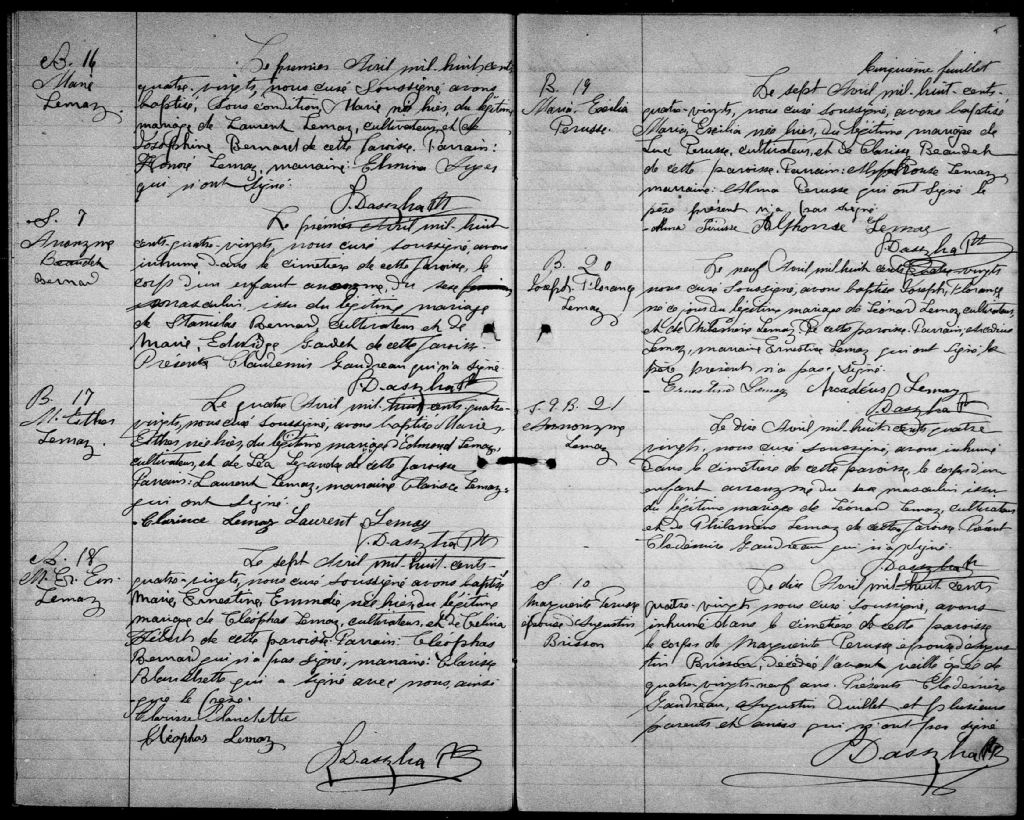 B. 16
Marie
Lemay
Le premier Avril mil-huit cent
quatre-vingts, nous curé soussigné avons
baptisé, sous condition, Marie née hier, du légitime
mariage de Laurent Lemay, cultivateur, et de
Josephine Bernard de cette paroisse. Parrain:
Honoré Lemay, marraine: Elmina
qui n'ont signé.
S. 7
Anonyme
Beaudet
Bernard
Le premier Avril mil-huit
cent-quatre-vingts, nous curé soussigné, avons
inhumé dans le cimetière de cette paroisse, le
corps d'un enfant anonyme, du sexe
masculin, issu du légitime mariage
de Stanislas Bernard, cultivateur et de
Marie, Edwidge Gaudet de cette paroisse.
Présents Claudemis Gaudreau qui n'a signé.
B. 17
M. Esther
Lemay
Le quatre Avril mil-huit cent-quatre-
vingts, nous curé soussigné, avons baptisé Marie
Esther née hier, du légitime mariage d'Edmond Lemay,
cultivateur, et de Léa Legendre de cette paroisse
Parrain: Laurent Lemay, marraine Clarisce Lemay
qui ont signé.
Clarince Lemay Laurent Lemay
B. 18
M. Er. Em.
Lemay
Le sept Avril mil-huit-cent-
quatre-vingts, nous curé soussigné avons baptisé
Marie, Ernestine, Emmelie née hier, du légitime
mariage de Cléophas Lemay, cultivateur, et de Célina
Hébert de cette paroisse. Parrain: Cléophas
Bernard qui n'a pas signé, marraine: Clarisse
Blanchette qui a signé avec nous, ainsi
que le père.
Clarisse Blanchette
Cléophas Lemay
Cinquième feuillet
B. 19
Marie. Exilia
Perusse.
Le sept Avril mil-huit-cent-
quatre-vingts, nous curé soussigné, avons baptisé
Marie, Exilia née hier, du légitime mariage de
Luc Perusse, cultivateur, et de Clarisse Beaudet
de cette paroisse. Parrain: Alphonse Lemay,
marraine: Alma Perusse qui ont signé le
père présent n'a pas signé.
Alma Perusse Alphonse Lemay
B. 20
Joseph Florance
Lemay
Le neuf Avril mil huit cent quatre vingts
nous curé soussigné, avons baptisé Joseph, Florance,
né ce jour du légitime mariage de Léonard Lemay, cultivateur,
et de Philomène Lemay de cette paroisse. Parrain, Amédius
Lemay, marraine Ernestine Lemay qui ont signé, le
père présent n'a pas signé.
Ernestine Lemay Lemay
S. 9 B. 21
Annonyme
Lemay
Le dix Avril mil huit-cent quatre
vingts, nous curé soussigné, avons inhumé
dans le cimetière de cette paroisse, le corps d'un
enfant annonyme du sexe masculin issu
du légitime mariage de Léonard Lemay, cultivateur
et de Philomène Lemay de cette paroisse Présent
Clodémire Gaudreau qui n'a signé.
S. 10
Marguerite Perusse
épouse d'Augustin
Brisson
Le dix Avril mil huit cent
quatre-vingts nous curé soussigné, avons
inhumé dans le cimetière de cette paroisse
le corps de Marguerite Perusse épouse d'Augus
tin Brisson, décédée l'avant veille âgée de
quatre-vingts-neuf ans. Présents Clodémire
Gaudreau, Augustin Ouellet et plusieurs
parents et amies qui n'ont pas signé